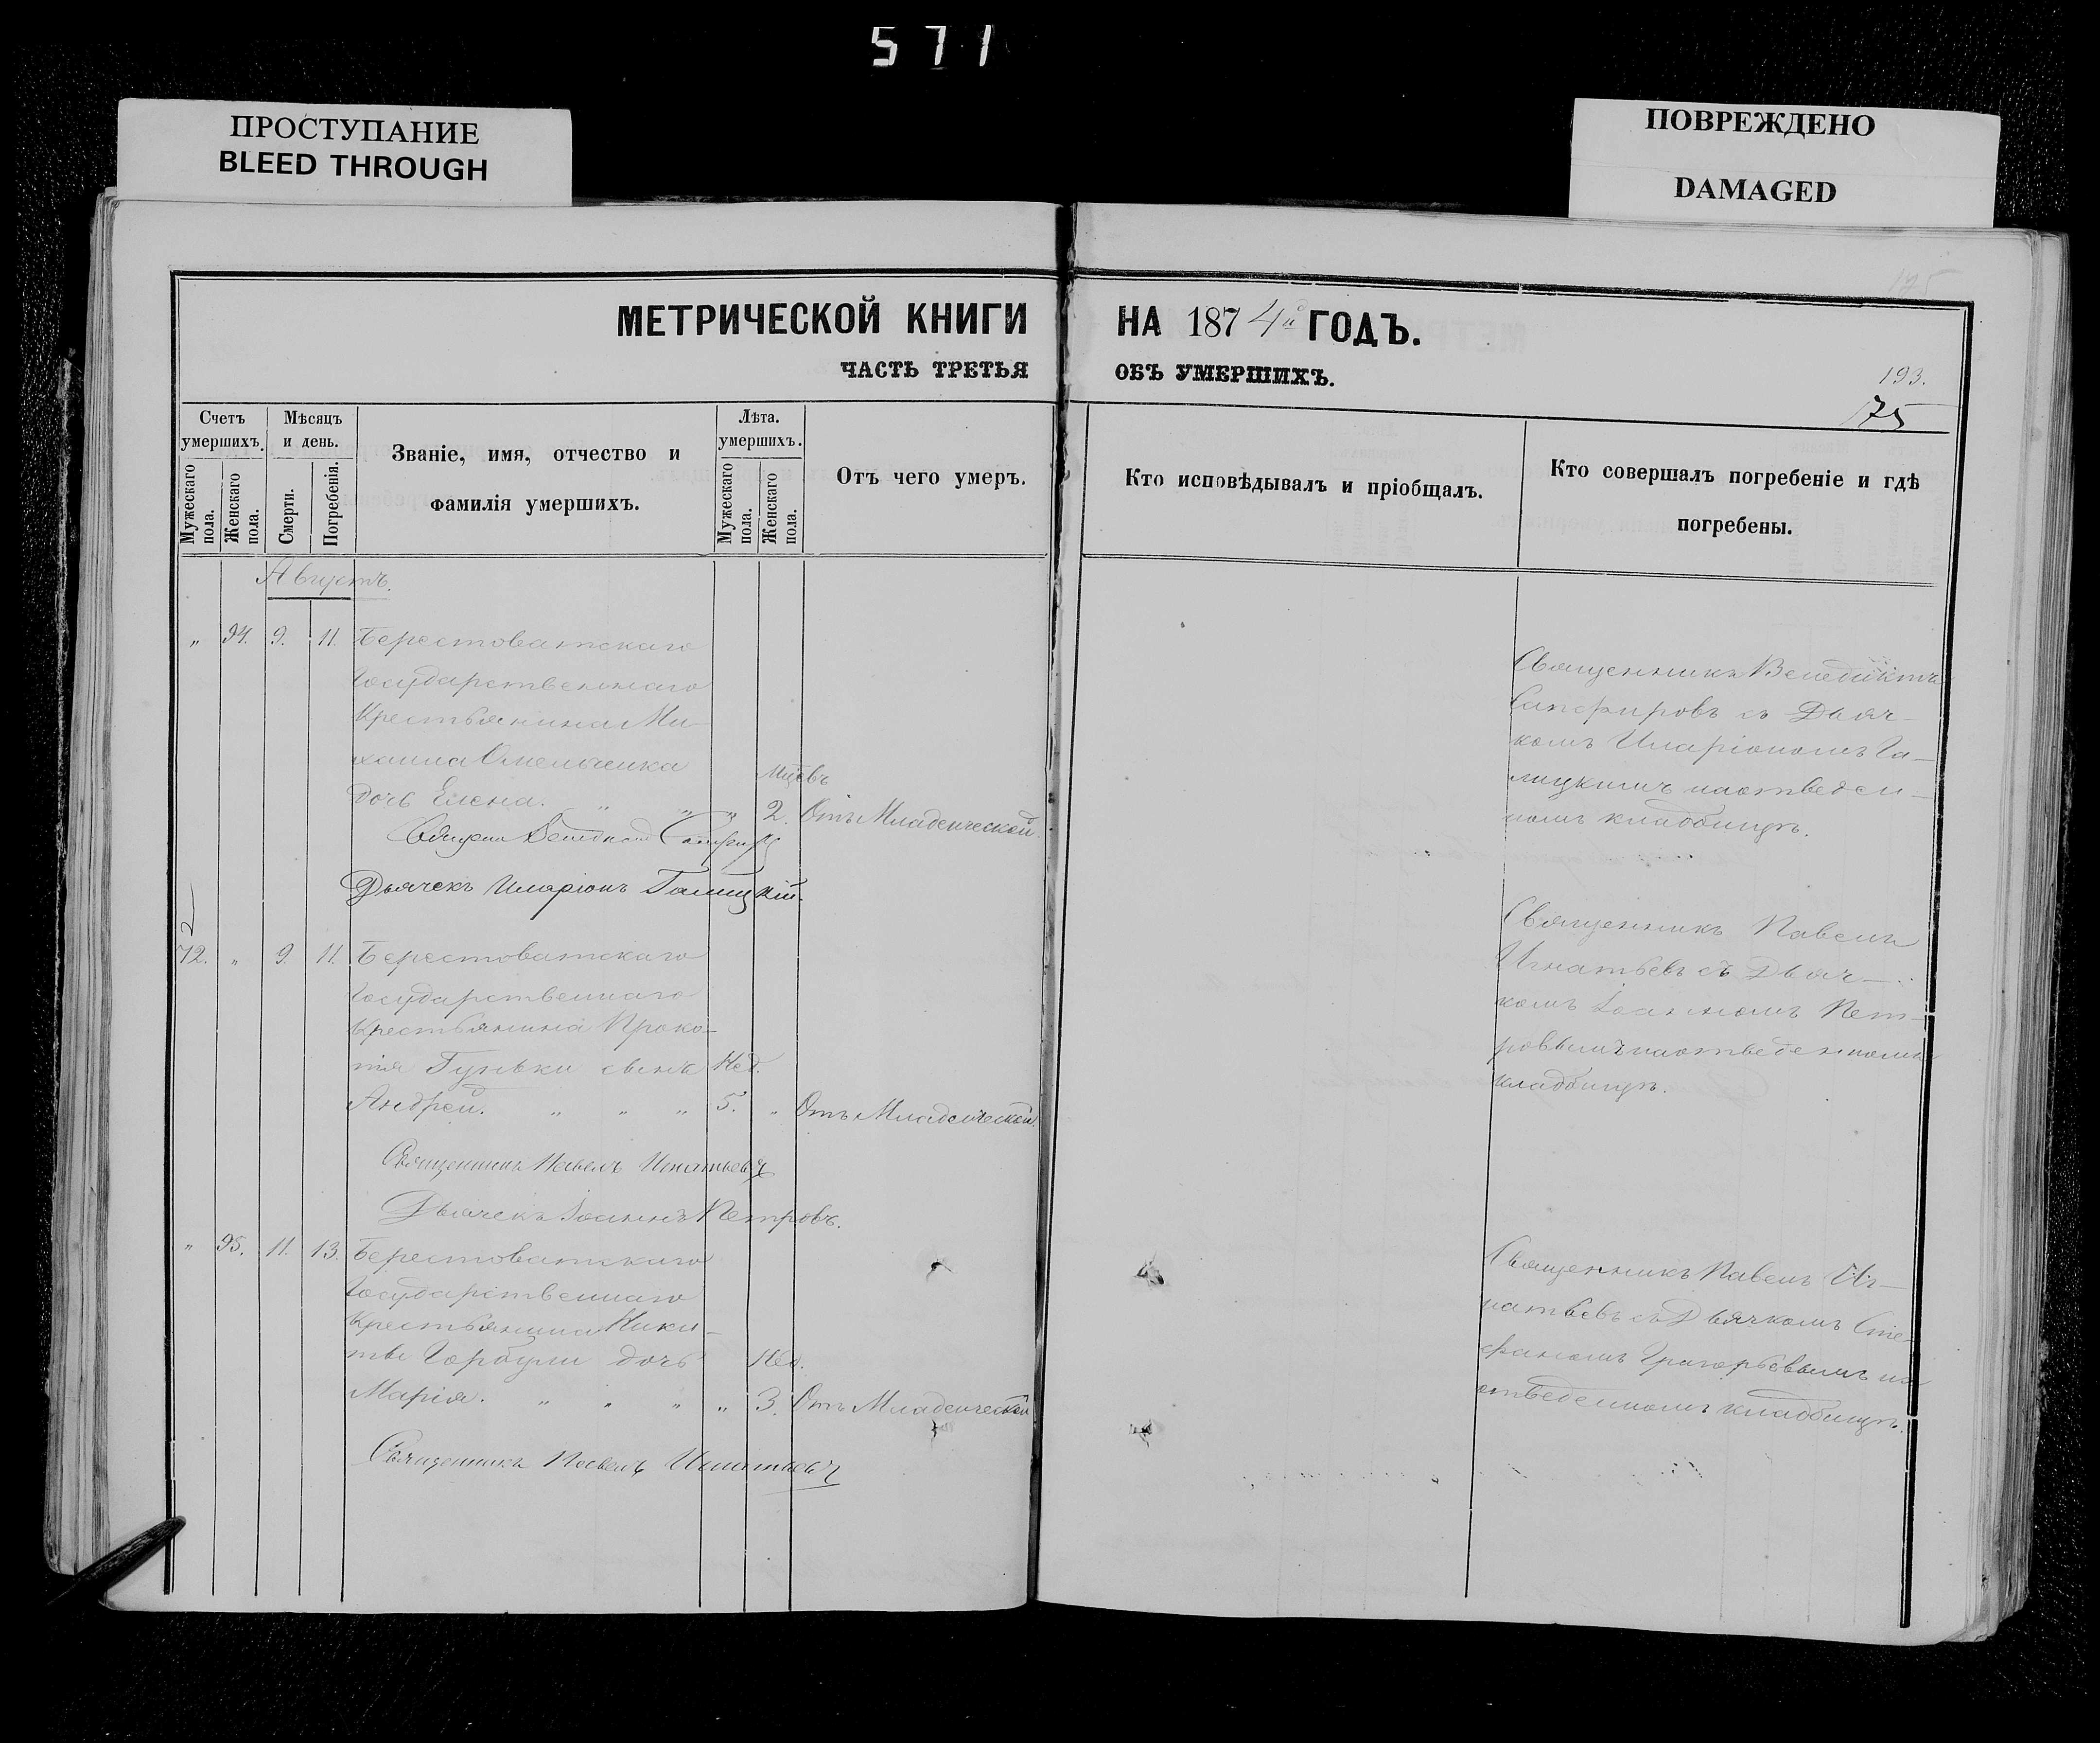 571
ПРОСТУПАНИЕ
BLEED THROUGH
ПОВРЕЖДЕНО
DAMAGED
175
МЕТРИЧЕСКОЙ КНИГИ НА 1874й ГОДЪ.
ЧАСТЬ ТРЕТЬЯ ОБЪ УМЕРШИХЪ.
193.
175
Счетъ умершихъ.
Мужескаго пола.
Женскаго пола.
Мѣсяцъ и день.
Смерти.
Погребенія.
Званіе, имя, отчество и
фамилія умершихъ.
Лѣта умершихъ.
Мужескаго пола.
Женскаго пола.
Отъ чего умеръ.
Кто исповѣдывалъ и пріобщалъ.
Кто совершалъ погребеніе и гдѣ
погребены.
Августъ.
" 94. 9. 11. Берестоватскаго
Государственнаго
Крестьянина Ми-
хаила Омельченка
Мцевъ
дочь Елена. " " " 2. Отъ Младенческой.
Дьячекъ Иларіонъ Галицкій.
Священникъ Венедиктъ
Сапфировъ съ Дьяч-
комъ Иларіономъ Га-
лицкимъ на отведен-
номъ кладбищѣ.
2
72. " 9. 11. Берестоватскаго
Государственнаго
Крестьянина Проко-
пія Гуньки сынъ Нед.
Андрей. " " " 5. " Отъ Младенческой.
Священникъ Павелъ Игнатьевъ
Дьячекъ Іоаннъ Петровъ.
Священникъ Павелъ
Игнатьевъ съ Дьяч-
комъ Іоанномъ Пет-
ровымъ на отведенномъ
кладбищѣ.
" 95. 11. 13. Берестоватскаго
Государственнаго
Крестьянина Ники-
ты Горбули дочь Нед.
Марія. " " " " 3. Отъ Младенческой
Священникъ Павелъ Игнатьевъ
Священникъ Павелъ Иг-
натьевъ съ Дьячкомъ Сте-
фаномъ Григорьевымъ на
отведенномъ кладбищѣ.